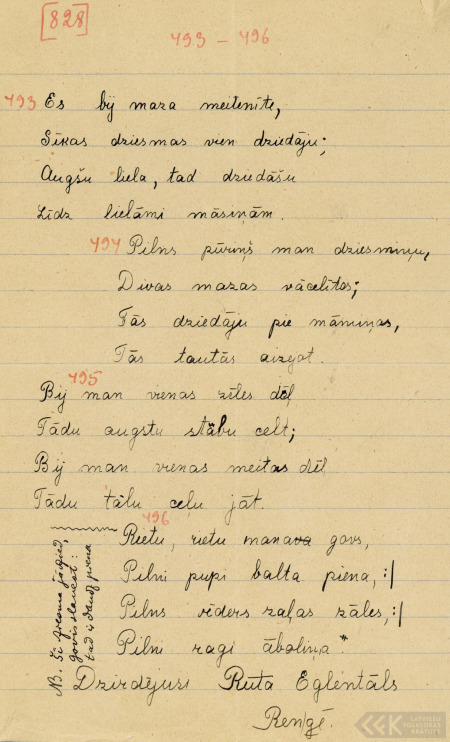 [828]
493 – 496
493 Es bij maza meitenīte,
Sīkas dziesmas vien dziedāju;
Augšu liela, tad dziedāšu
Līdz lielāmi māsiņām.
494 Pilns pūriņš man dziesmiņu,
Divas mazas vācelītes;
Tās dziedāju pie māmiņas,
Tās tautās aizgot.
495
Bij man vienas zīles dēļ
Tādu augstu stabu celt;
Bij man vienas meitas dēļ
Tādu tālu ceļu jāt.
496
Rietu, rietu manava govs,
Pilni pupi balta piena, :/
Pilns vēders zaļas zāles, :/
Pilni ragi āboliņa *
NB. Šī dziesma jādzied,
govis slaucot:
tad ir daudz piena
Dzirdējusi Ruta Eglentāls
Reņģē.
LATVIEŠU
FOLKLORAS
KRĀTUVE